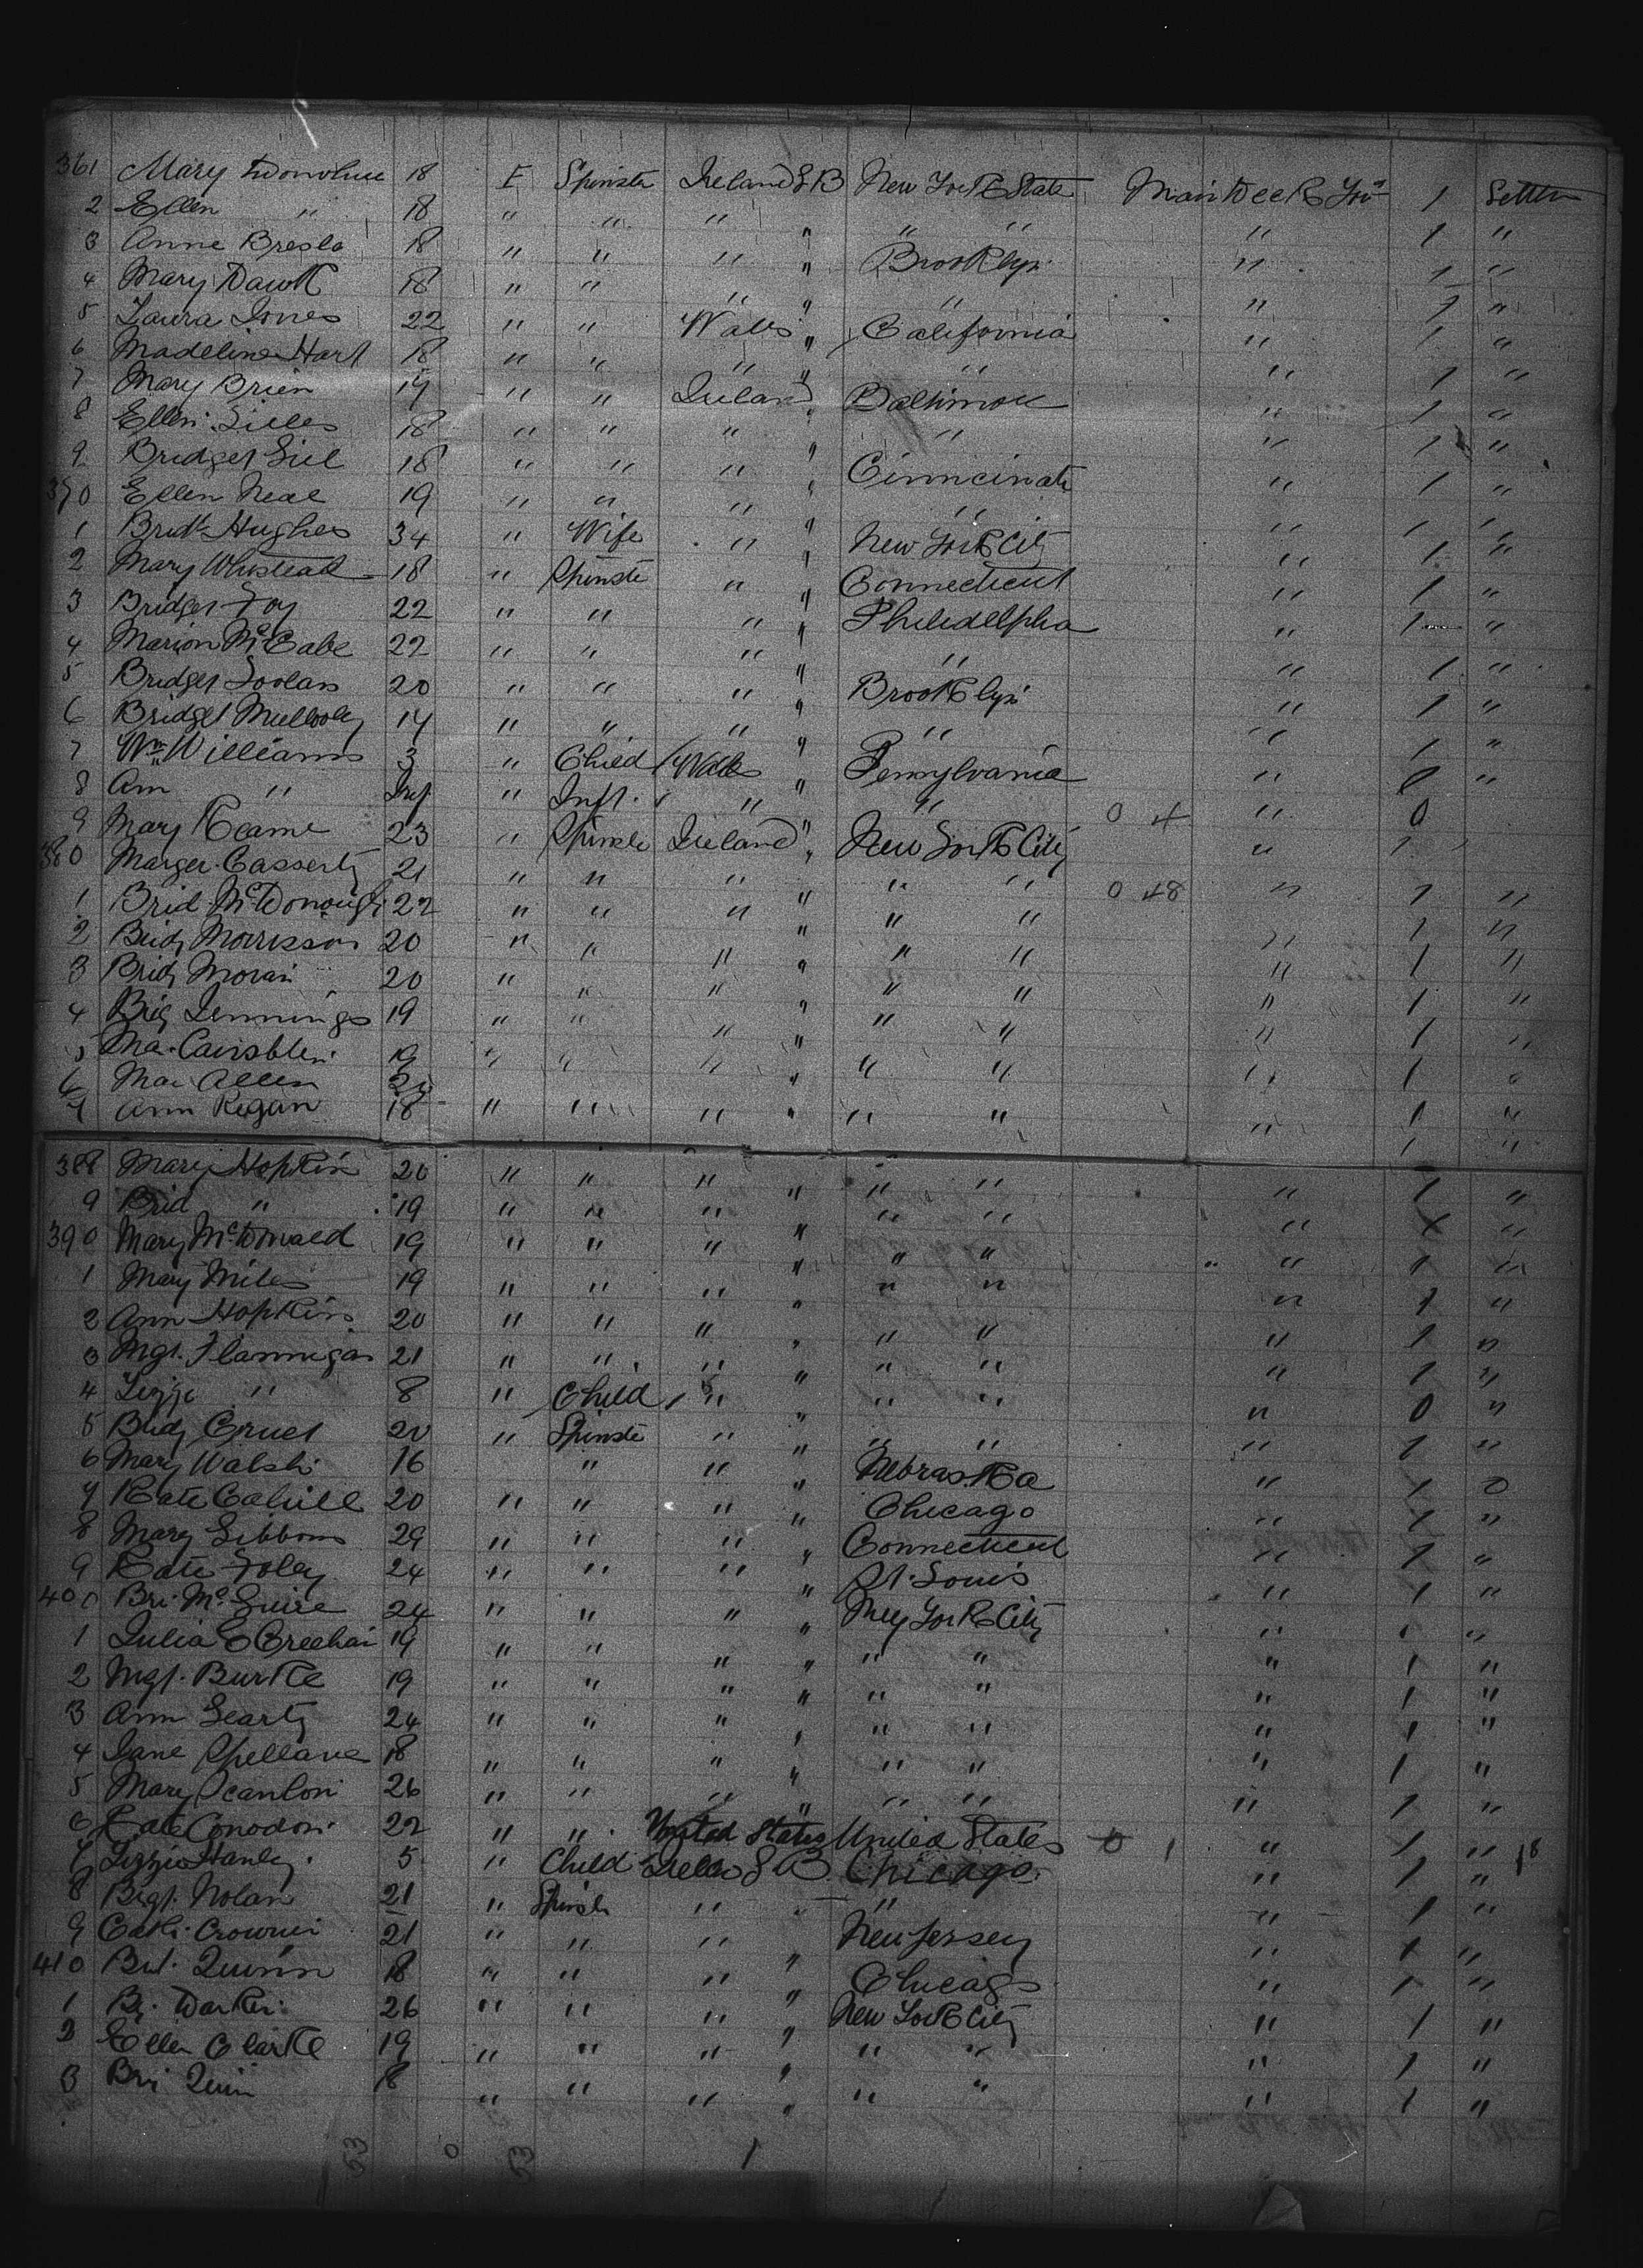 361 Mary Donohue 18 F Spinster Ireland GB New York State Main Deck 1 Settler
2 Ellen " 18 " " " " " " " 1 "
3 Anne 18 " " " " Brooklyn " 1 "
4 Mary 18 " " " " " " 1 "
5 Laura Jones 22 " " Wales " California " 1 "
6 Madeline Hart 18 " " " " " " 1 "
7 Mary Brien 19 " " Ireland " Baltimore " 1 "
8 Ellen 18 " " " " " " 1 "
9 Bridget 18 " " " " Cinncinati " 1 "
370 Ellen Neal 19 " " " " " " 1 "
1 Bridt Hughes 34 " Wife " " New York City " 1 "
2 Mary 18 " Spinste " " Connecticut " 1 "
3 Bridget Foy 22 " " " " Philedelphia " 1 "
4 Marion McCabe 22 " " " " " " 1 "
5 Bridget 20 " " " " Brooklyn " 1 "
6 Bridget Mullooly 14 " " " " " " 1 "
7 Wm Williams 3 " Child Wales " Pennsylvania " 0 "
8 Ann " Inf " Inft. " " " 0 4 " 0
9 Mary Keame 23 " Spinste Ireland " New York City " 1 "
380 Marger Casserty 21 " " " " " " 0 48 " 1 "
1 Brid McDonough 22 " " " " " " " 1 "
2 Bridg Morrisson 20 " " " " " " " 1 "
3 Bridg Moran 20 " " " " " " " 1 "
4 Brig Jennings 19 " " " " " " " 1 "
5 Ma. 19 " " " " " " " 1 "
6 Mar Allen " " " " " " " 1 "
7 Ann Regan 18 " " " " " " " 1 "
388 Mary Hopkin 20 " " " " " " " 1 "
9 Brid " 19 " " " " " " " 1 "
390 Mary McDonald 19 " " " " " " " 1 "
1 Mary Miles 19 " " " " " " " 1 "
2 Ann Hopkins 20 " " " " " " " 1 "
3 Mgt. Flannigan 21 " " " " " " " 1 "
4 Lizzie " 8 " Child " " " " " 0 "
5 Bridg 20 " Spinste " " " " " 1 "
6 Mary Walsh 16 " " " Nebraska " 1 "
7 Kate Cahill 20 " " " " Chicago " 1 "
8 Mary Gibbons 29 " " " " Connecticut " 1 "
9 Kate Foley 24 " " " " St. Louis " 1 "
400 Bri. McGuire 24 " " " " New York City " 1 "
1 Julia 19 " " " " " " " 1 "
2 Mgt. Burke 19 " " " " " " " 1 "
3 Ann Gearty 24 " " " " " " " 1 "
4 Jane Spellane 18 " " " " " " " 1 "
5 Mary Scanlon 26 " " " " " " " 1 "
6 Kate Conodon 22 " " United States United States 0 1 " 1 " 18
7 Lizzie Hanley 5 " Child GB Chicago " 1 "
8 Brgt. Nolan 21 " Spinste " " " " 1 "
9 Cath. 21 " " " " New Jersey " 1 "
410 Brt. Quinn 18 " " " " Chicago " 1 "
1 Br. 26 " " " " New York City " 1 "
2 Ellen Clarke 19 " " " " " " " 1 "
3 Bri Quin 18 " " " " " " " 1 "